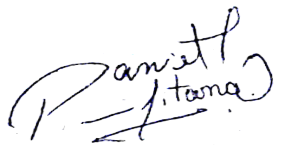 Daniel
Pitanga